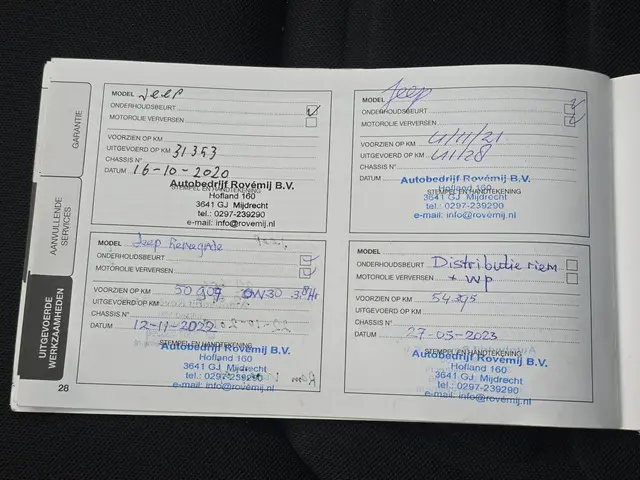 GARANTIE
AANVULLENDE
SERVICES
UITGEVOERDE
WERKZAAMHEDEN
28
MODEL Jeep
ONDERHOUDSBEURT
MOTOROLIE VERVERSEN
VOORZIEN OP KM
UITGEVOERD OP KM 31353
CHASSIS N°
DATUM 16-10-2020
STEMPEL EN HANDTEKENING
Autobedrijf Rovémij B.V.
Hofland 160
3641 GJ Mijdrecht
tel.: 0297-239290
e-mail: info@rovemij.nl
MODEL Jeep
ONDERHOUDSBEURT
MOTOROLIE VERVERSEN
VOORZIEN OP KM
UITGEVOERD OP KM
CHASSIS N°
DATUM
STEMPEL EN HANDTEKENING
Autobedrijf Rovémij B.V.
Hofland 160
3641 GJ Mijdrecht
tel.: 0297-239290
e-mail: info@rovemij.nl
MODEL Jeep Renegade
ONDERHOUDSBEURT
MOTOROLIE VERVERSEN
VOORZIEN OP KM 50 909 0W30
UITGEVOERD OP KM
CHASSIS N°
DATUM 12-11-2022
STEMPEL EN HANDTEKENING
Autobedrijf Rovémij B.V.
Hofland 160
3641 GJ Mijdrecht
tel.: 0297-239290
e-mail: info@rovemij.nl
MODEL
ONDERHOUDSBEURT Distributie riem
MOTOROLIE VERVERSEN + WP
VOORZIEN OP KM 54395
UITGEVOERD OP KM
CHASSIS N°
DATUM 27-05-2023
STEMPEL EN HANDTEKENING
Autobedrijf Rovémij B.V.
Hofland 160
3641 GJ Mijdrecht
tel.: 0297-239290
e-mail: info@rovemij.nl